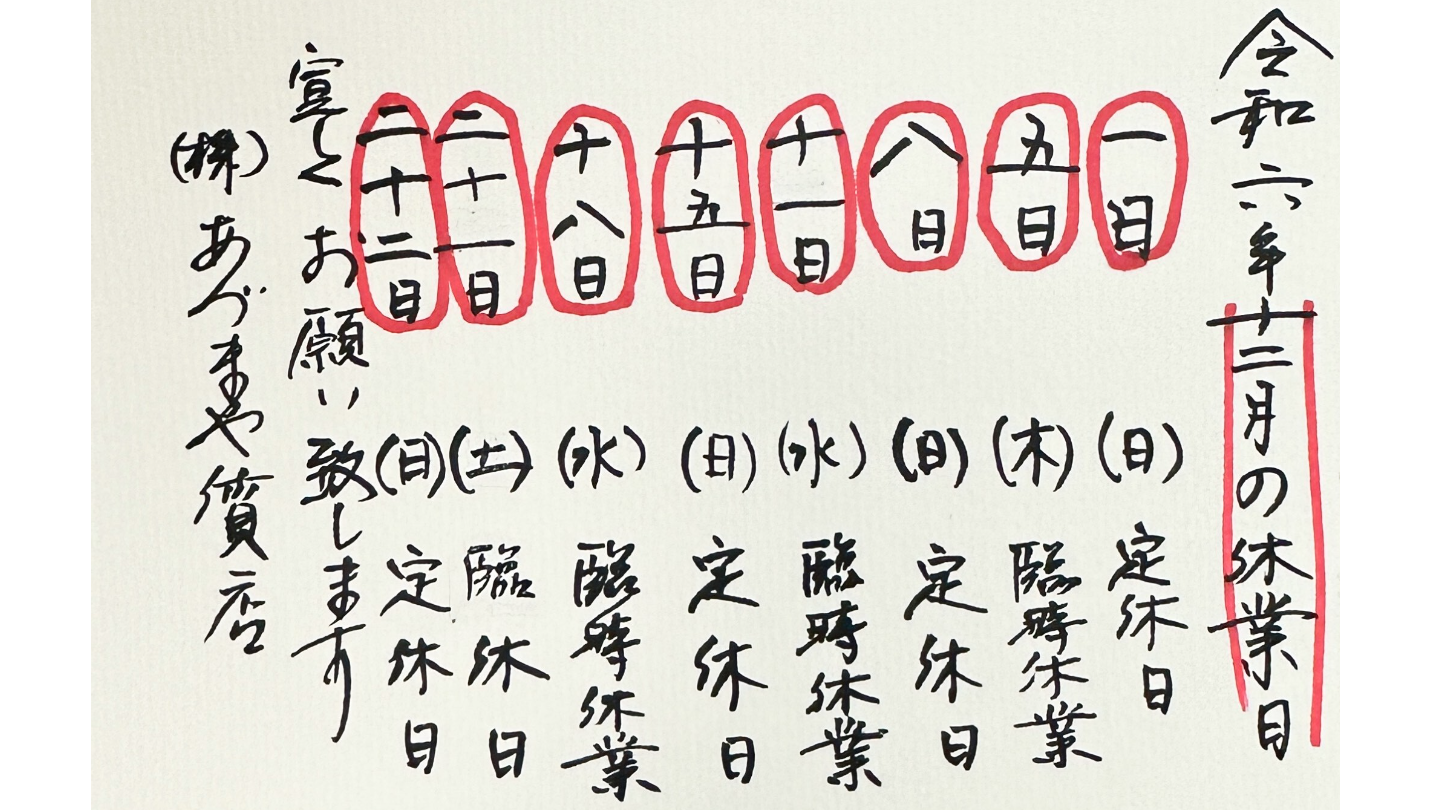 令和六年十二月の休業日
一日 (日) 定休日
五日 (木) 臨時休業
八日 (日) 定休日
十一日 (水) 臨時休業
十五日 (日) 定休日
十八日 (水) 臨時休業
二十一日 (土) 臨休日
二十二日 (日) 定休日
宜しくお願い致します
(株)あづまや質店